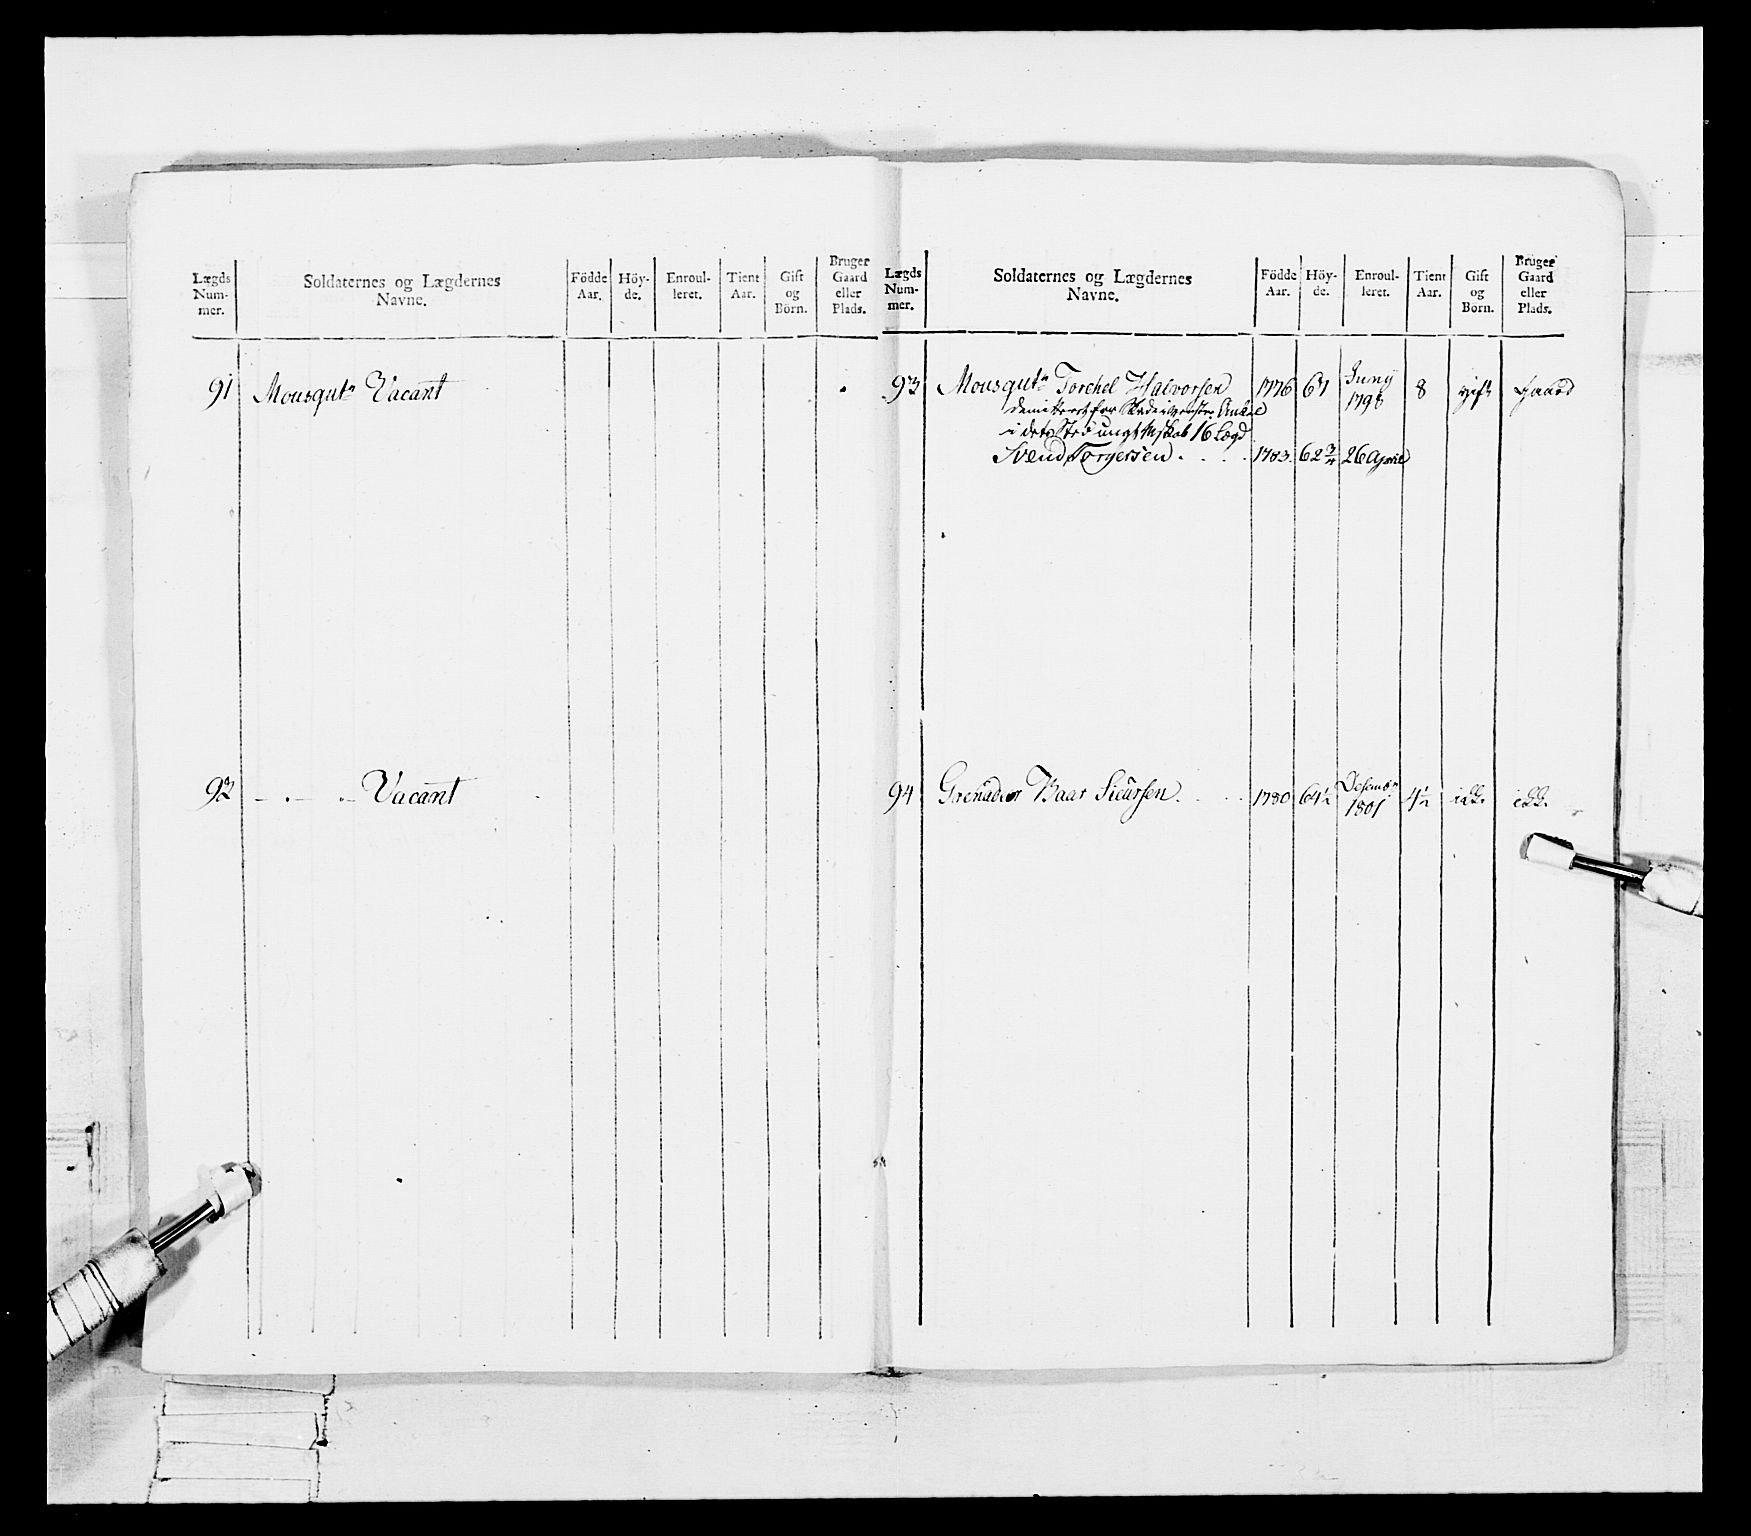 Lægds Num- mer.
Soldaternes og Lægdernes Navne.
Födde Aar.
Höy- de.
Enroul- leret.
Tient Aar.
Gift og Börn.
Bruger Gaard eller Plads.
91 Mousqutr Vacant
92 — . — . — Vacant
Lægds Num- mer.
Soldaternes og Lægdernes Navne.
Födde Aar.
Höy- de.
Enroul- leret.
Tient Aar.
Gift og Börn.
Bruger Gaard eller Plads.
93 Mousqutr Torchel Halvorsen 1776 61 Juny 1798 8 gift gaard
demitteret for Skade i venstre Ankel
i dets Sted ungt Mskab 16 Lægd
Svend Torgersen . . . 1783. 62 3/4 26 April
94 Grenader Baar Siversen. . . 1780 64 1/2 Desembr 1801 4 1/2 ikke ikke.